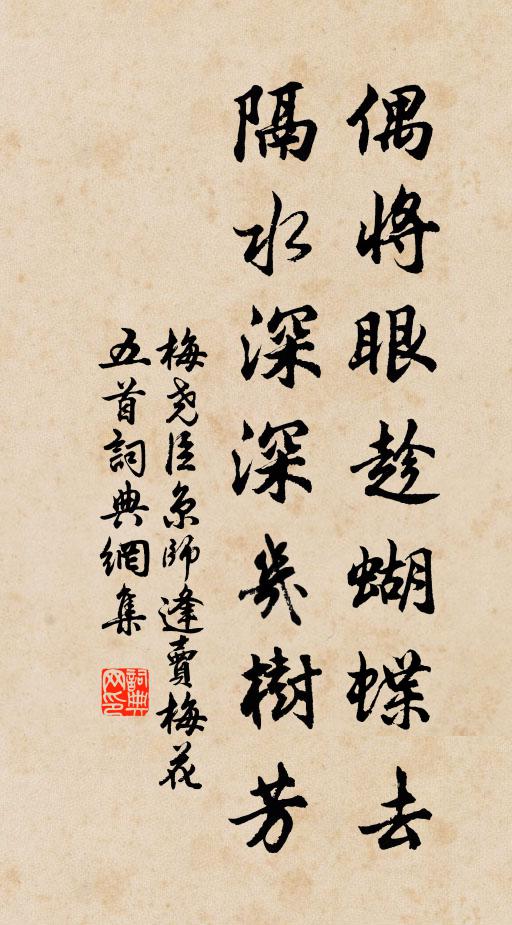 偶將眼趁蝴蝶去
隔水深深幾樹芳
梅堯臣京師逢賣梅花
五首詞典網集
詞典網印